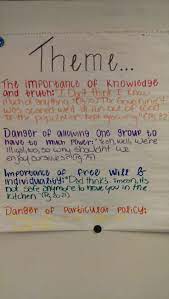 Theme...
The importance of knowledge
and truth: "I Don't think I know
much of anything." The Government
was scared we'd all run out of food
so the population kept growing."
Danger of allowing one group to
have to much Power: "well, we're
illegal, too, so why shouldn't we
enjoy ourselves?"
Importance of Free Will &
individuality: "Dad thinks I mean, its
not safe anymore to have you in the
kitchen
Danger of Particular Policy: